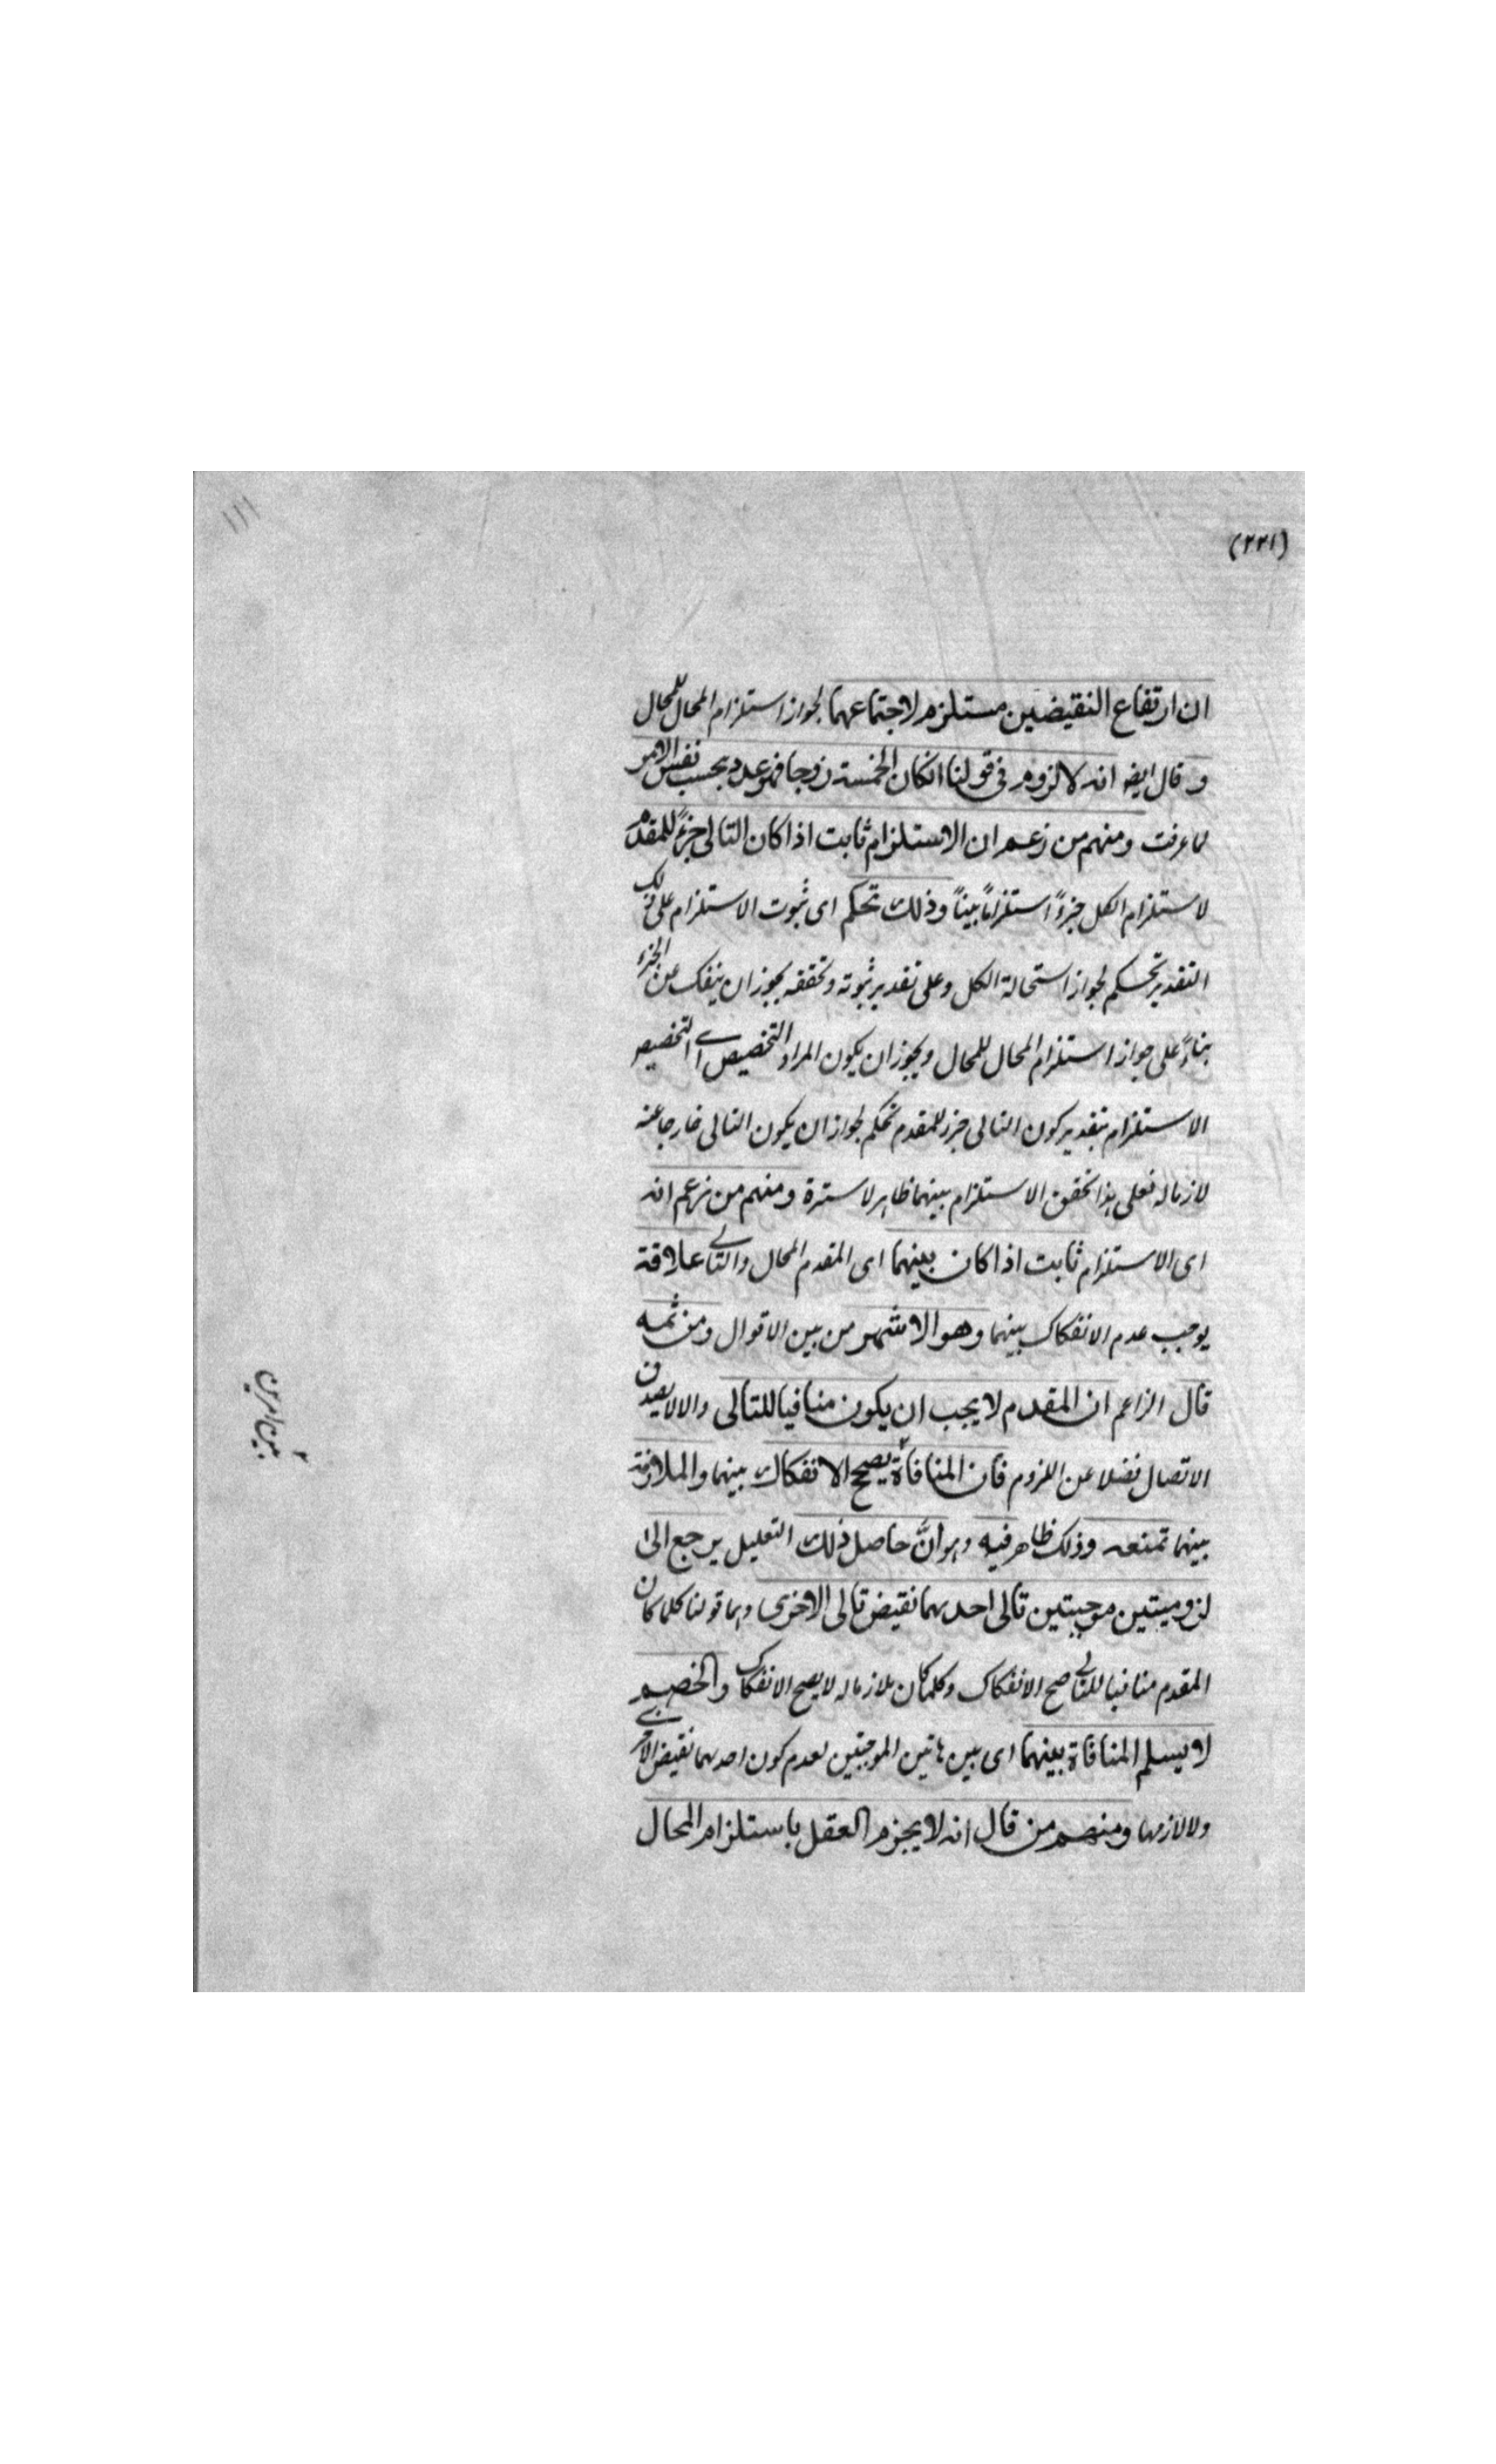 ١١١
(٢٢١)
ان ارتفاع النقيضين مستلزم لاجتماعهما لجواز استلزام المحال للمحال
وقال ايضه انه لا لزوم فى قولنا انكان الخمسة زوجا فهو عدد بحسب نفس الامر
لما عرفت ومنهم من زعم ان الاستلزام ثابت اذا كان التالى جزءً للمقدم
لاستلزام الكل جزءً استلزاماً بيناً وذلك تحكم اى ثبوت الاستلزام على ذلك
التقدير تحكم لجواز استحالة الكل وعلى تقدير ثبوته وتحققه يجوز ان ينفك عن الجزء
بناءً على جواز استلزام المحال للمحال ويجوز ان يكون المراد التخصيص اے التخصيص
الاستلزام بتقدير كون التالى جزء للمقدم تحكم لجواز ان يكون التالى خارجا عنه
لازما له فعلى هذا تحقق الاستلزام بينهما ظاهر لا سترة ومنهم من زعم انه
اى الاستلزام ثابت اذا كان بينهما اى المقدم المحال والتالے علاقة
يوجب عدم الانفكاك بينهما وهو الاشهر من بين الاقوال ومن ثمه
قال الزاعم ان المقدم لا يجب ان يكون منافيا للتالى والا لا يصدق
الاتصال فضلا عن اللزوم فان المنافاة يصحح الانفكاك بينهما والملازمة
بينهما تمنعه وذلك ظاهر فيه وهو انَّ حاصل ذلك التعليل يرجع الى
لزوميتين موجبتين تالى احدهما نقيض تالى الاخرى وهما قولنا كلما كان
المقدم منافيا للتالے صح الانفكاك وكلما كان ملازما له لا يصح الانفكاك والخصم
لا يسلم المنافاة بينهما اى بين هاتين الموجبتين لعدم كون احدهما نقيض الاخرى
ولا لازمها ومنهم من قال انه لا يجزم العقل باستلزام المحال